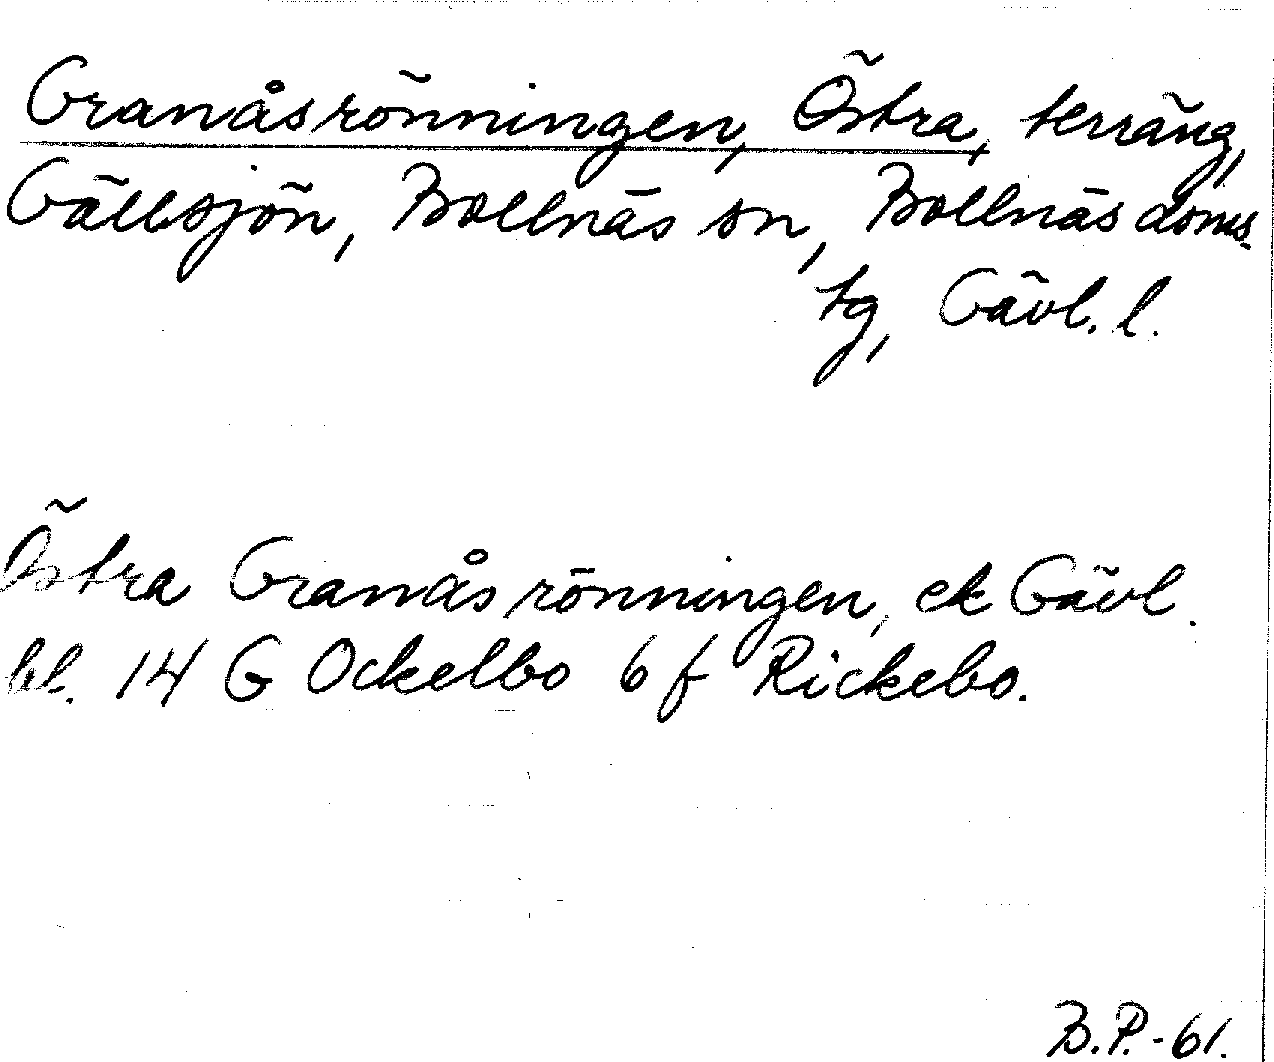 Granåsrönningen, Östra, terräng,
Gällsjön, Bollnäs sn, Bollnäs doms.
tg, Gävl. l.
Östra Granåsrönningen, ek Gävl.
bl. 14 G Ockelbo 6 f Rickebo.
B.P.-61.